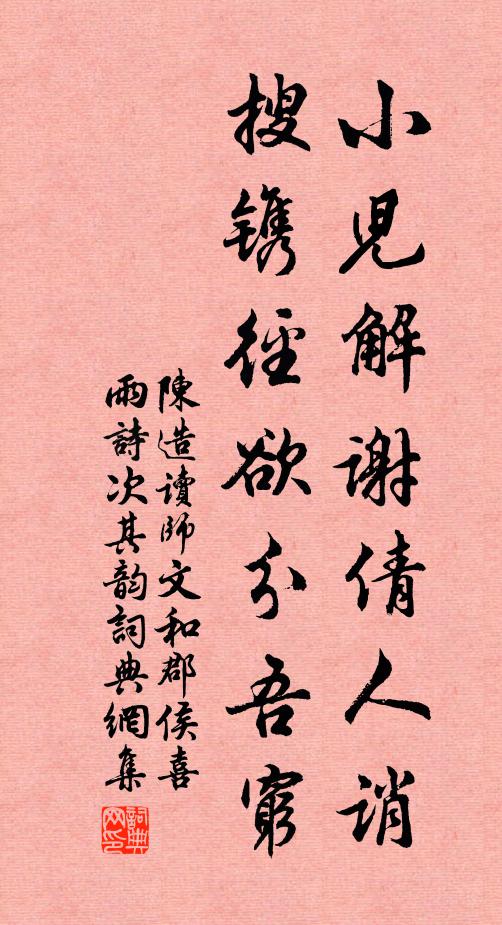 小児解谢倩人誚
搜镌徑欲分吾窮
陳造讀師文和郡侯喜
雨詩次其韵詞典網集
詞典网印